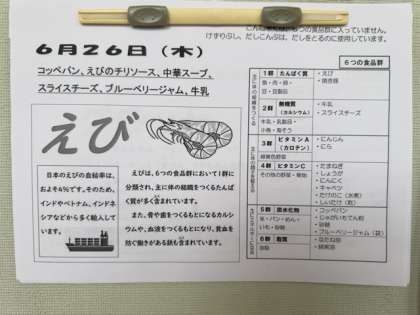 6つの食品群に入っていません。
けずりぶし、だしこんぶは、だしをとるのに使用しています。
6月26日（木）
コッペパン、えびのチリソース、中華スープ、
スライスチーズ、ブルーベリージャム、牛乳
えび
日本のえびの自給率は、
およそ4%です。そのため、
インドやベトナム、インドネ
シアなどから多く輸入して
います。
えびは、6つの食品群において1群に
分類され、主に体の組織をつくるたんぱ
く質が多く含まれています。
また、骨や歯をつくるもとになるカルシ
ウムや、血液をつくるもとになり、貧血を
防ぐ働きがある鉄も含まれています。
6つの食品群
1群 たんぱく質
魚・肉・卵・
豆・豆製品
・えび
・焼き豚
2群 無機質
（カルシウム）
牛乳・乳製品・
小魚・海そう
・牛乳
・スライスチーズ
3群 ビタミンA
（カロテン）
緑黄色野菜
・にんじん
・にら
4群 ビタミンC
その他の野菜・果物
・たまねぎ
・しょうが
・にんにく
・キャベツ
・たけのこ（水煮）
・しいたけ（乾）
5群 炭水化物
米・パン・めん・
いも・砂糖
・コッペパン
・じゃがいもでん粉
・砂糖
・ブルーベリージャム（袋）
6群 脂質
油脂
・ほたね油
・綿実油